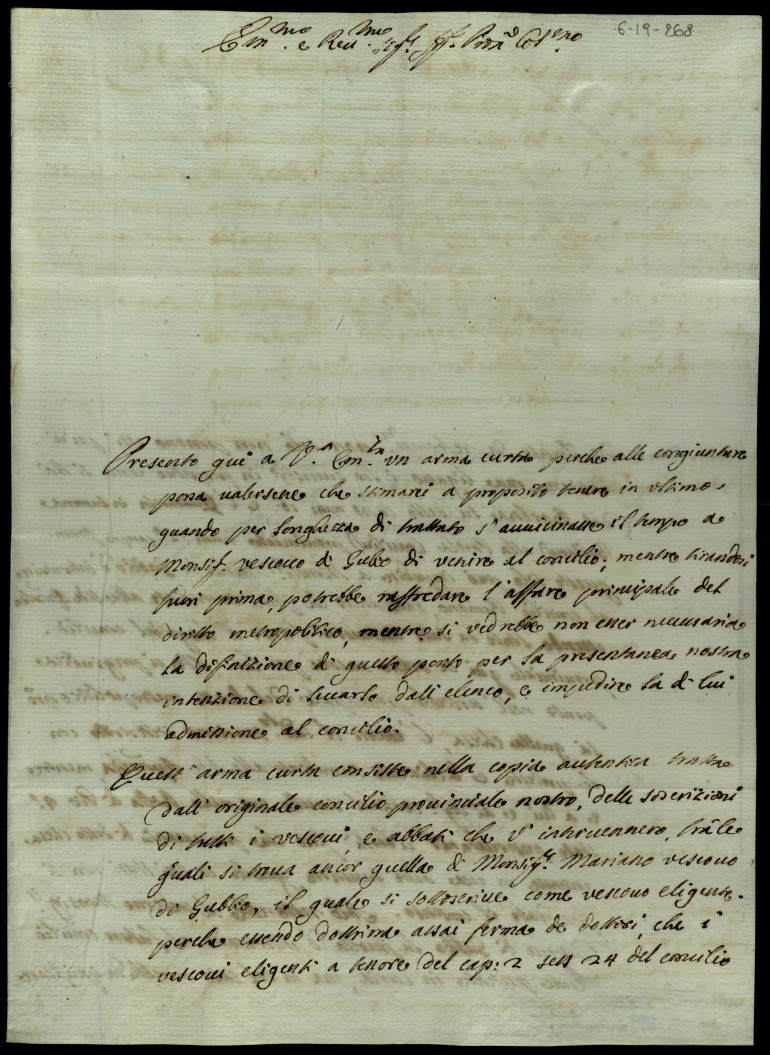 6-19-268
Em.mo e Rev.mo Sig.r Sig.r Pron Col.mo
Presento qui a V.a Em.za un arma curta perche alle congiunture
possa valersene che stimarei a proposito tenere in ultimo,
quando per longhezza di trattato s'auuicinasse il tempo a
Monsig.r vescouo di Gubio di venire al concilio; mentre tirandosi
fuori prima, potrebbe raffredare l'affare principale del
diritto metropolitico, mentre si vedrebbe non esser necessaria
la difinizione di questo ponto per la presentanea nostra
intenzione di leuarlo dall'elenco, e impedire la di lui
admissione al concilio.
Quest'arma curta consiste nella copia autentica tratta
dall'originale concilio prouinciale nostro, delle soscrizioni
di tutti i vescoui, e abbati che v'interuennero, trà le
quali si troua ancor quella di Monsig.r Mariano vescouo
di Gubbio, il quale si sottoscriue come vescouo eligente.
perche essendo dottrina assai ferma de dottori, che i
vescoui eligenti a tenore del cap: 2 sess 24 del concilio